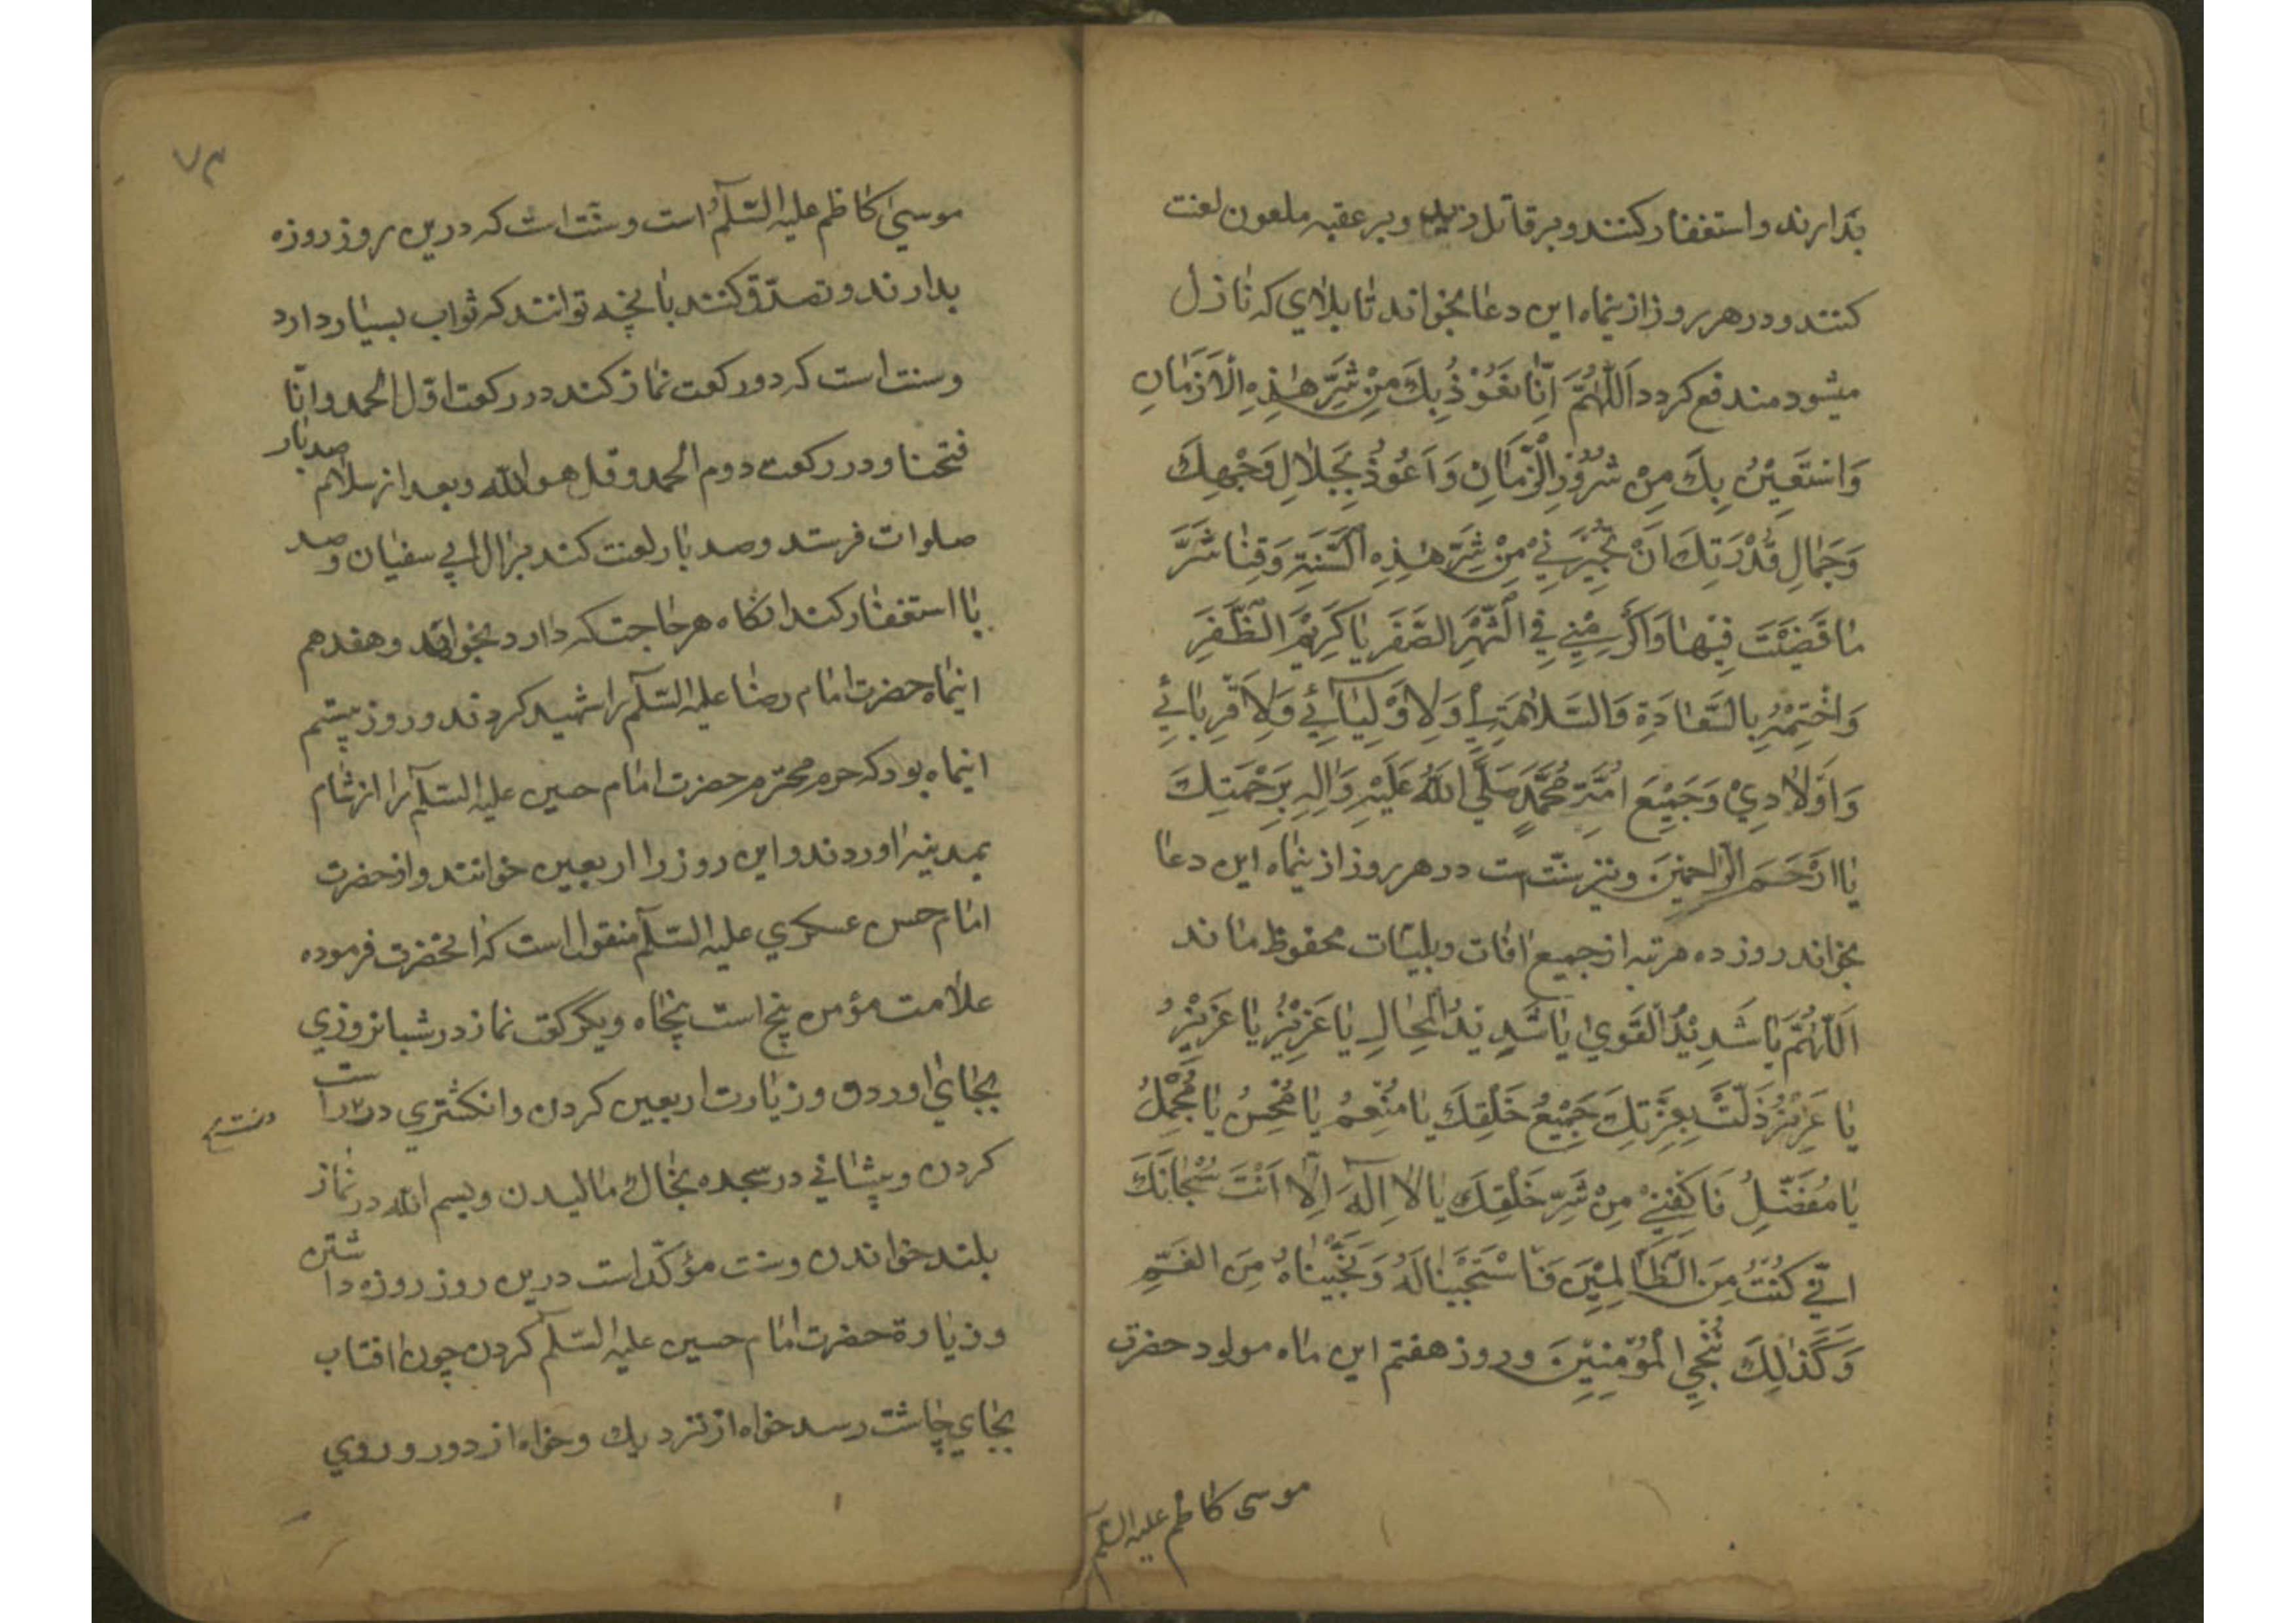 بدارند و استغفار کنند و بر قاتل زید و بر عقبه ملعون لعنت
کنند و در هر روز از ینماه این دعا بخواند تا بلاای که نازل
میشود مندفع کردد اَللّٰهُمَّ اِنّٰا نَعُوْذُ بِكَ مِنْ شَرِّ هٰذِهِ الْاَزَمٰانِ
وَاسْتَعِيْنُ بِكَ مِنْ شُرُوْرِ الْزَّمٰانِ وَاَعُوْذُ بِجَلٰالِ وَجْهِكَ
وَجَمٰالِ قُدْرَتِكَ اَنْ تُجِيْرَنِيْ مِنْ شَرِّ هٰذِهِ السَّنَةِ وَقِنٰا شَرَّ
مٰا قَضَيْتَ فِيْهٰا وَاَكْرِمْنِيْ فِي الشَّهْرِ الصَّفَرِ يٰا كَرِيْمَ الظَّفَرِ
وَاخْتِمْهُ بِالسَّعٰادَةِ وَالسَّلاٰمَةِ لِيْ وَلِاَوْلِيٰآئِيْ وَلِاَقْرِبٰائِيْ
وَاَوْلاٰدِيْ وَجَمِيْعِ اُمَّةِ مُحَمَّدٍ صَلَّي اللهُ عَلَيْهِ وَاٰلِهِ بِرَحْمَتِكَ
يٰا اَرْحَمَ الرّٰاحِمِيْنَ و نیز سنّت است در هر روز از ینماه این دعا
بخواند روز ده مرتبه از جمیع افات و بلیّات محفوظ ماند
اَللّٰهُمَّ يٰا شَدِيْدُ الْقَوِيُ يٰا شَدِيْدُ الْمِحٰالِ يٰا عَزِيْزُ يٰا عَزِيْزُ
يٰا عَزِيْزُ ذَلَّتْ بِعِزَّتِكَ جَمِيْعُ خَلْقِكَ يٰا مُنْعِمُ يٰا مُحْسِنُ يٰا مُجْمِلُ
يٰا مُفَضِّلُ فَاكْفِنِيْ مِنْ شَرِّ خَلْقِكَ يٰا لاٰ اِلٰهَ اِلّٰا اَنْتَ سُبْحٰانَكَ
اِنّي كُنْتُ مِنَ الظّٰالِمِيْنَ فَاسْتَجَبْنٰا لَهُ وَنَجَّيْنٰاهُ مِنَ الغَمِّ
وَكَذٰلِكَ نُنْجِي الْمُؤْمِنِيْنَ و روز هفتم این ماه مولود حضرت
موسی کاظم علیه السّلم
۷۳
موسیٰ کاظم علیه السّلٰم است و سنّت است که درین روز روزه
بدارند و تصدّق کنند بانچه توانند که ثواب بسیار دارد
و سنت است که دو رکعت نماز کند در رکعت اوّل الحمد و انّا
فتحنا و در رکعت دوم الحمد و قل هو الله و بعد از سلام صد بار
صلوات فرستد و صد بار لعنت کند بر ال ابی سفیان و صد
با استغفار کند انکاه هر حاجتکه دارد بخواند و هفدهم
اینماه حضرت امام رضا علیه السّلٰم را شهید کردند و روز بیستم
اینماه بود که حرم محترم حضرت امام حسین علیه السّلٰم را از شام
بمدینه اوردند و این روز را اربعین خوانند و از حضرت
امام حسن عسکری علیه السّلٰم منقول است که انحضرت فرموده
علامت مؤمن پنج است پنجاه و یک رکعت نماز در شبانروزی
بجای اوردن و زیارت اربعین کردن و انکشتری در راست
کردن و پیشانی در سجده بخاک مالیدن و بسم الله در نماز
بلند خواندن و سنت مؤکّد است درین روز روزه داشتن
و زیارة حضرت امام حسین علیه السّلٰم کردن چون افتاب
بجای چاشت رسد خواه از نزدیک و خواه از دور و روی